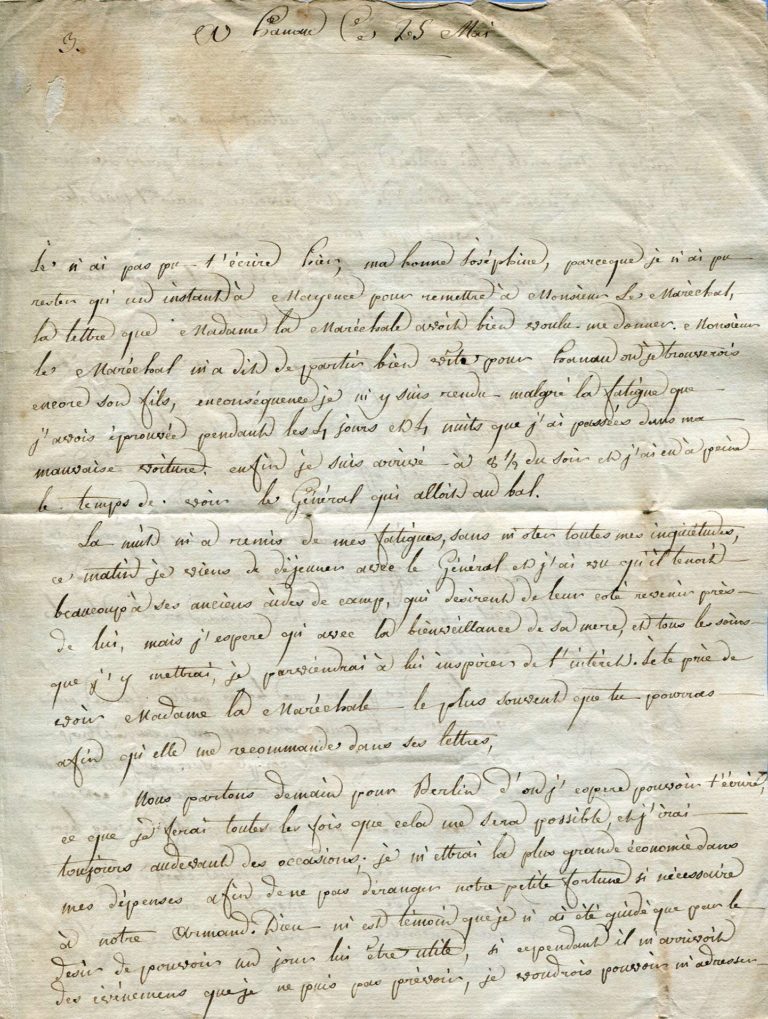 3. à hanau Ce 25 Mai
Je n'ai pas pu t'écrire hier, ma bonne Joséphine, parceque je n'ai pu
rester qu'un instant à Mayence pour remettre à Monsieur Le Maréchal,
la lettre que Madame la Maréchale avoit bien voulu me donner. Monsieur
le Maréchal m'a dit de partir bien vite pour hanau où je trouverois
encore son fils, enconséquence je m'y suis rendu malgré la fatigue que
j'avois éprouvée pendant les 4 jours et 4 nuits que j'ai passées dans ma
mauvaise voiture. enfin je suis arrivé à 8 1/2 du soir et j'ai eu à peine
le temps de voir le Général qui alloit au bal.
La nuit m'a remis de mes fatigues, sans m'oter toutes mes inquiétudes,
ce matin je viens de déjeuner avec le Général et j'ai vu qu'il tenoit
beaucoup à ses anciens aides de camp, qui desirent de leur coté revenir près
de lui, mais j'espere qu'avec la bienveillance de sa mere, et tous les soins
que j'y mettrai, je parviendrai à lui inspirer de l'intéret. Je te prie de
voir Madame la Maréchale le plus souvent que tu pourras
afin qu'elle me recommande dans ses lettres,
Nous partons demain pour Berlin d'où j'espere pouvoir t'écrire,
ce que je ferai toutes les fois que cela me sera possible, et j'irai
toujours audevant des occasions; je mettrai la plus grande économie dans
mes dépenses afin de ne pas déranger notre petite fortune si nécessaire
à notre Armand. Dieu m'est témoin que je n'ai été guidé que par le
desir de pouvoir un jour lui être utile, si cependant il m'arrivoit
des évènemens que je ne puis pas prévoir, je voudrois pouvoir m'adresser